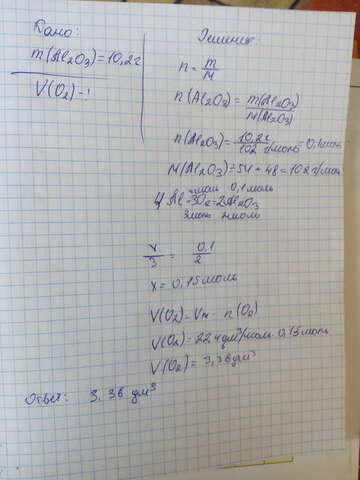 Дано:
m(Al₂O₃)=10,2г
V(O₂)-?
Решение:
n = m/M
n(Al₂O₃) = m(Al₂O₃)/M(Al₂O₃)
n(Al₂O₃) = 10,2г/102 г/моль = 0,1моль
M(Al₂O₃) = 54 + 48 = 102 г/моль
xмоль 0,1моль
4Al+3O₂=2Al₂O₃
3моль 2моль
x/3 = 0,1/2
x = 0,15моль
V(O₂) = Vm · n(O₂)
V(O₂) = 22,4дм³/моль · 0,15моль
V(O₂) = 3,36дм³
Ответ: 3,36 дм³